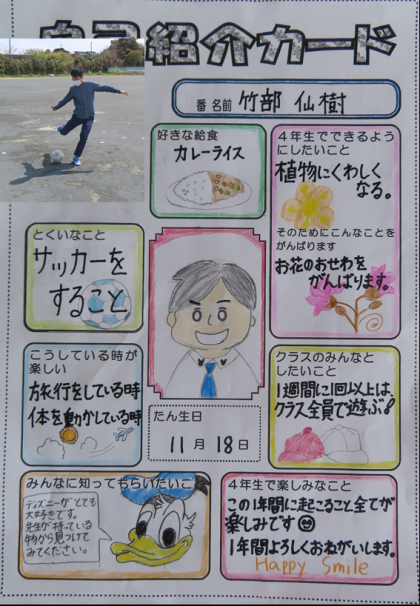 自己紹介カード
番 名前 竹部 仙樹
好きな給食
カレーライス
4年生でできるよう
にしたいこと
植物にくわしく
なる。
そのためにこんなことを
がんばります
お花のおせわを
がんばります。
とくいなこと
サッカーを
すること
こうしている時が
楽しい
旅行をしている時
体を動かしている時
たん生日
11月18日
クラスのみんなと
したいこと
1週間に1回以上は、
クラス全員で遊ぶ!
みんなに知ってもらいたいこ
ディズニーがとても
大好きです。
先生が持っている
物から見つけて
みてください。
4年生で楽しみなこと
この1年間に起こること全てが
楽しみです
1年間よろしくおねがいします。
Happy Smile